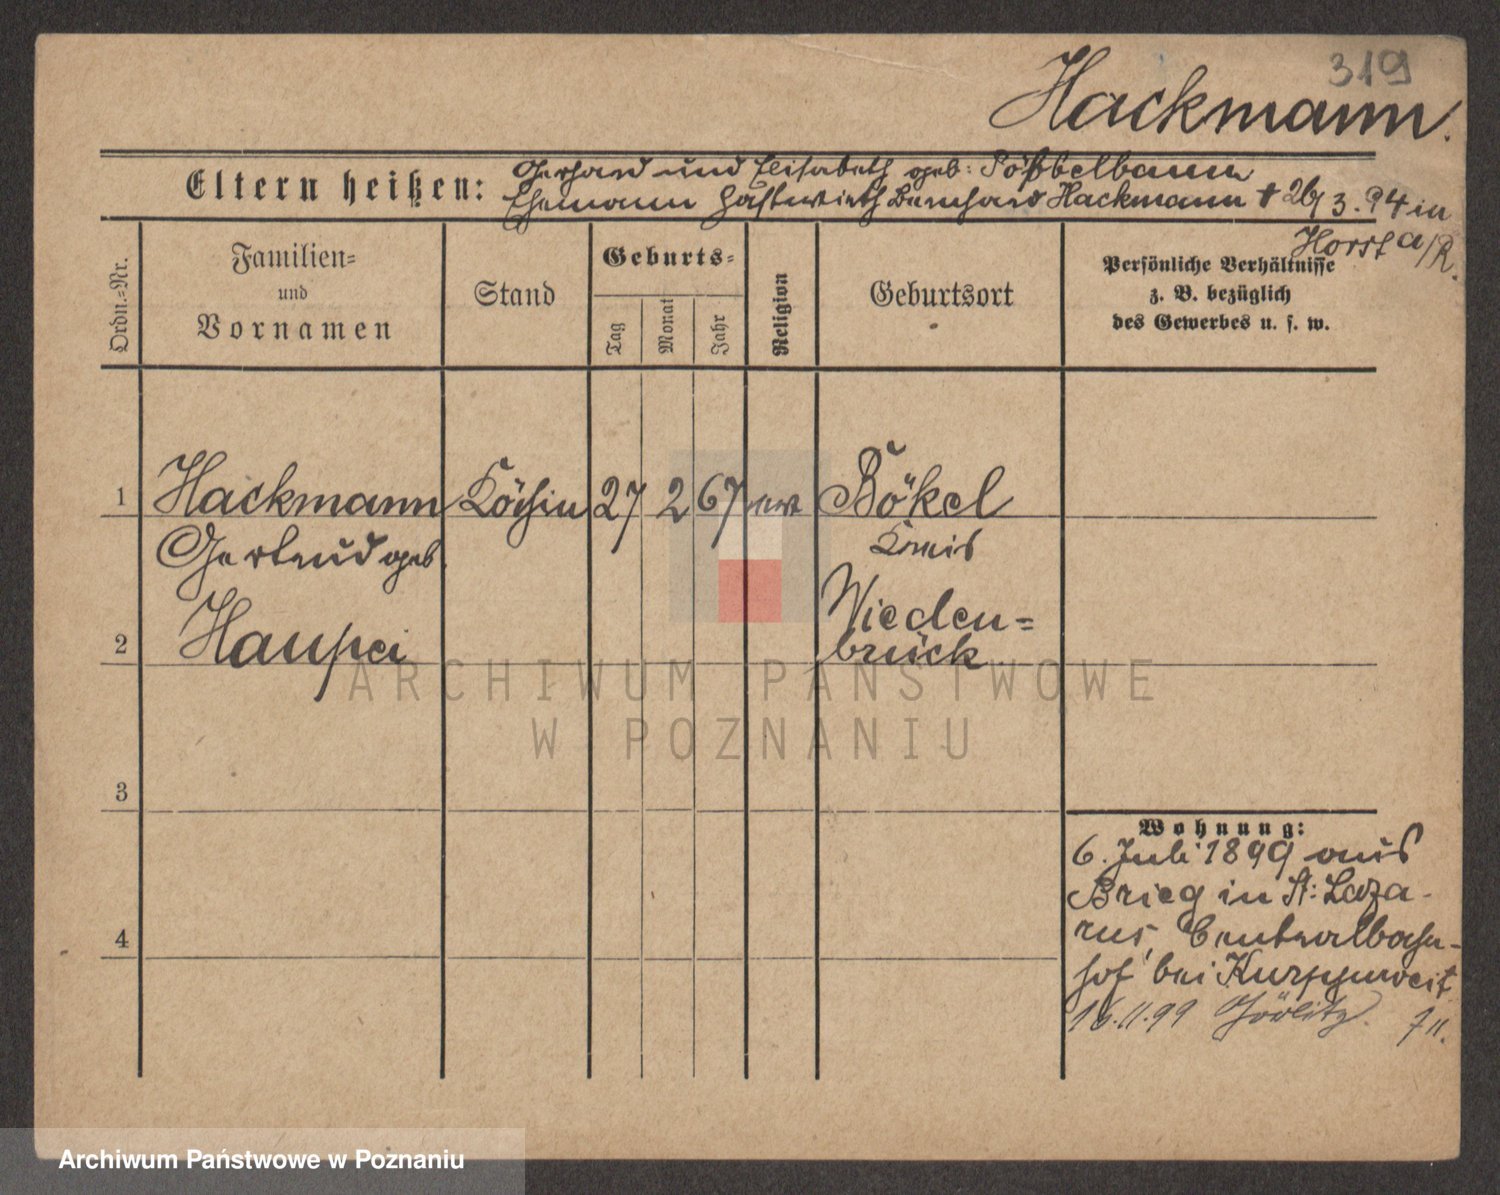 319
Hackmann.
Eltern heißen: Gerhard und Elisabeth geb: Pößbelbaum
Ehemann Gastwirth Bernhard Hackmann † 26/3. 94 in
Horst a/R.
Ordn.-Nr.
Familien-
und
Vornamen
Stand
Geburts-
Tag
Monat
Jahr
Religion
Geburtsort
Persönliche Verhältnisse
z. B. bezüglich
des Gewerbes u. s. w.
1 Hackmann Köchin 27 2 67 Bökel
Gertrud geb. Kreis
Wieden=
2 brück
3
Wohnung:
6. Juli 1899 aus
Brieg in St: Laza-
rus, Centralbahn-
4
hof, bei
16.11.99 Görlitz.
ARCHIWUM PAŃSTWOWE
W POZNANIU
Archiwum Państwowe w Poznaniu